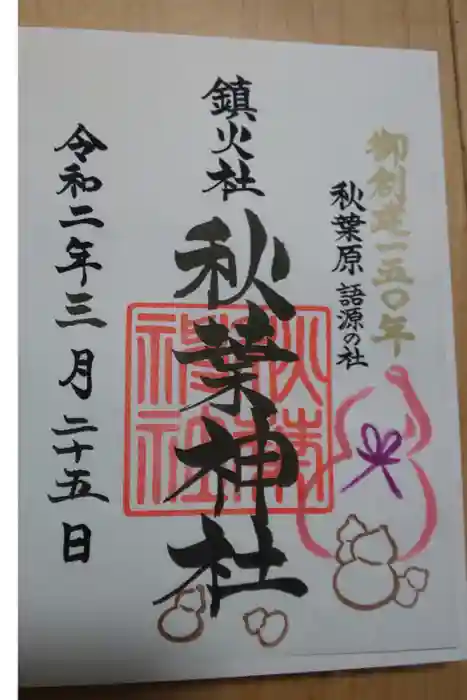 御創建一五〇年
秋葉原 語源の社
鎮火社
秋葉神社
令和二年三月二十五日
秋葉神社